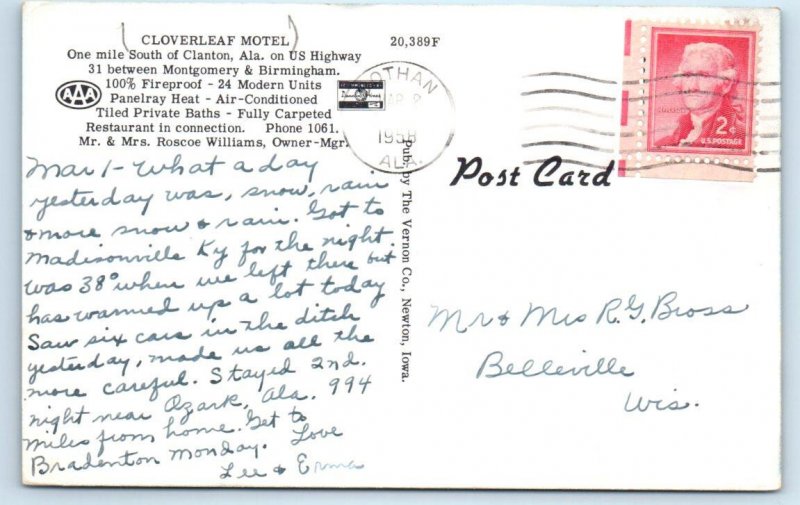 CLOVERLEAF MOTEL
One mile South of Clanton, Ala. on US Highway
31 between Montgomery & Birmingham.
100% Fireproof - 24 Modern Units
Panelray Heat - Air-Conditioned
Tiled Private Baths - Fully Carpeted
Restaurant in connection. Phone 1061.
Mr. & Mrs. Roscoe Williams, Owner-Mgr.
AAA
20,389F
DOTHAN
1958
ALA.
2¢
U.S. POSTAGE
Post Card
Pub. by The Vernon Co., Newton, Iowa.
Mar 1 - What a day
yesterday was, snow, rain
& more snow & rain. Got to
Madisonville Ky for the night.
Was 38° when we left there but
has warmed up a lot today
Saw six cars in the ditch
yesterday, made us all the
more careful. Stayed 2nd.
night near Ozark, Ala. 994
miles from home. Get to
Bradenton Monday. Love
Lee & Erma
Mr & Mrs R.G. Bross
Belleville
Wis.